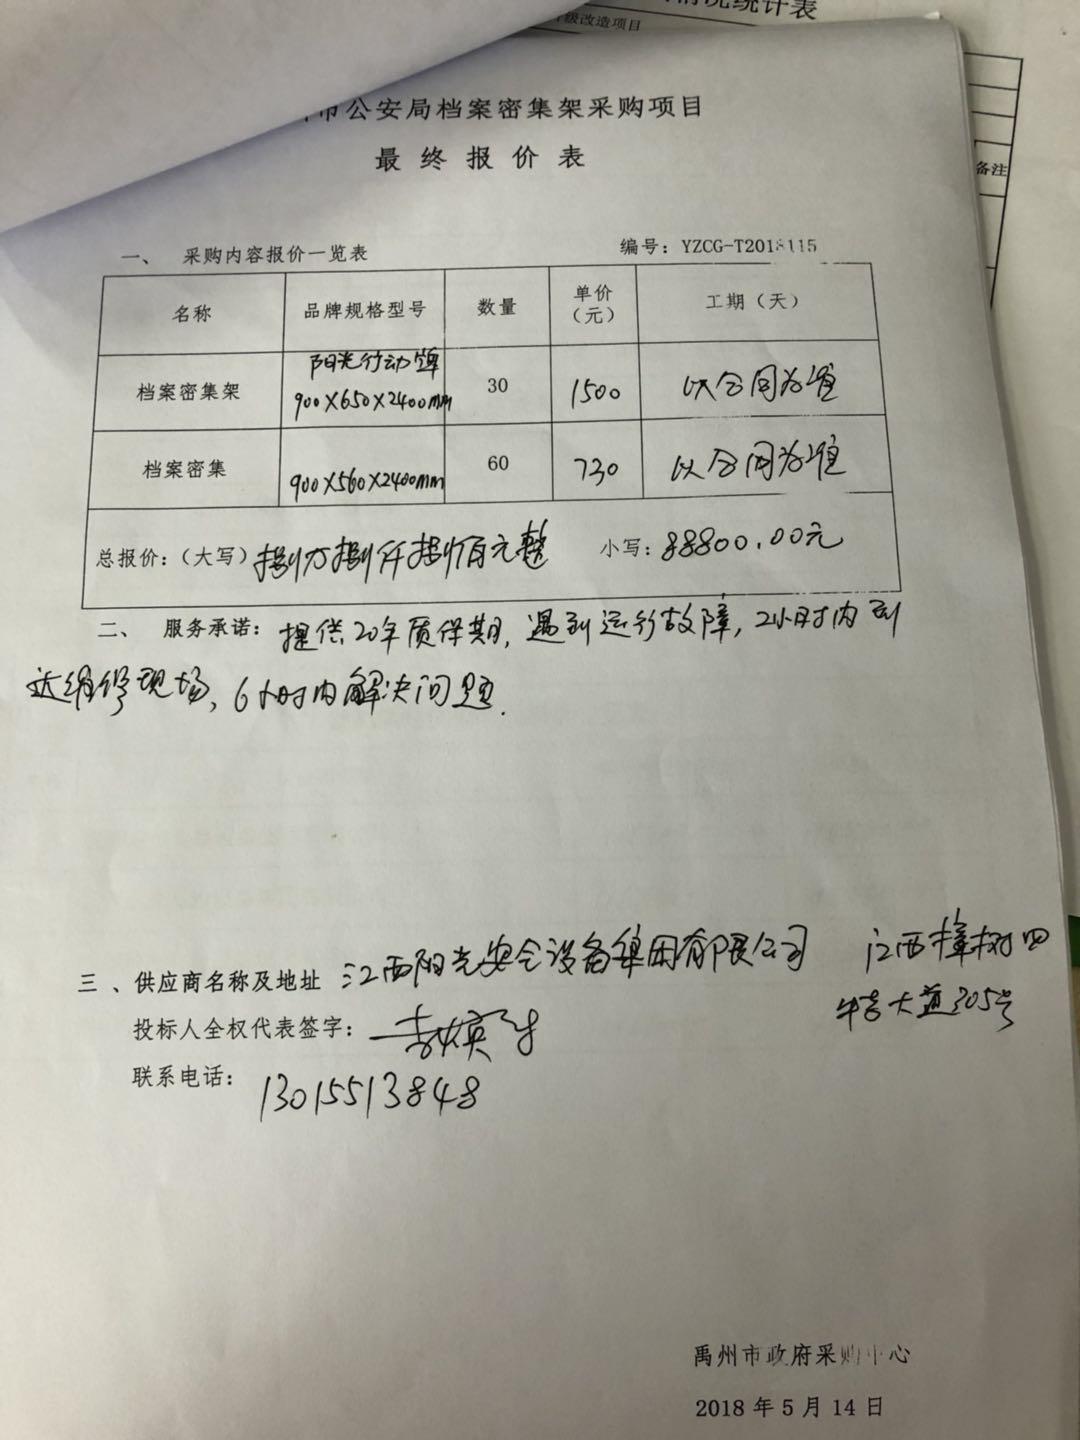 情况统计表
级改造项目
备注
市公安局档案密集架采购项目
最终报价表
一、 采购内容报价一览表 编号：YZCG-T2018115
名称 品牌规格型号 数量 单价（元） 工期（天）
档案密集架 阳光行动牌 900X650X2400mm 30 1500 以合同为准
档案密集 900X560X2400mm 60 730 以合同为准
总报价：（大写）捌万捌仟捌佰元整 小写：88800.00元
二、 服务承诺：提供20年质保期，遇到运行故障，2小时内到
达维修现场，6小时内解决问题.
三、供应商名称及地址 江西阳光安全设备集团有限公司 江西樟树四
特大道305号
投标人全权代表签字：
联系电话：13015513848
禹州市政府采购中心
2018年5月14日